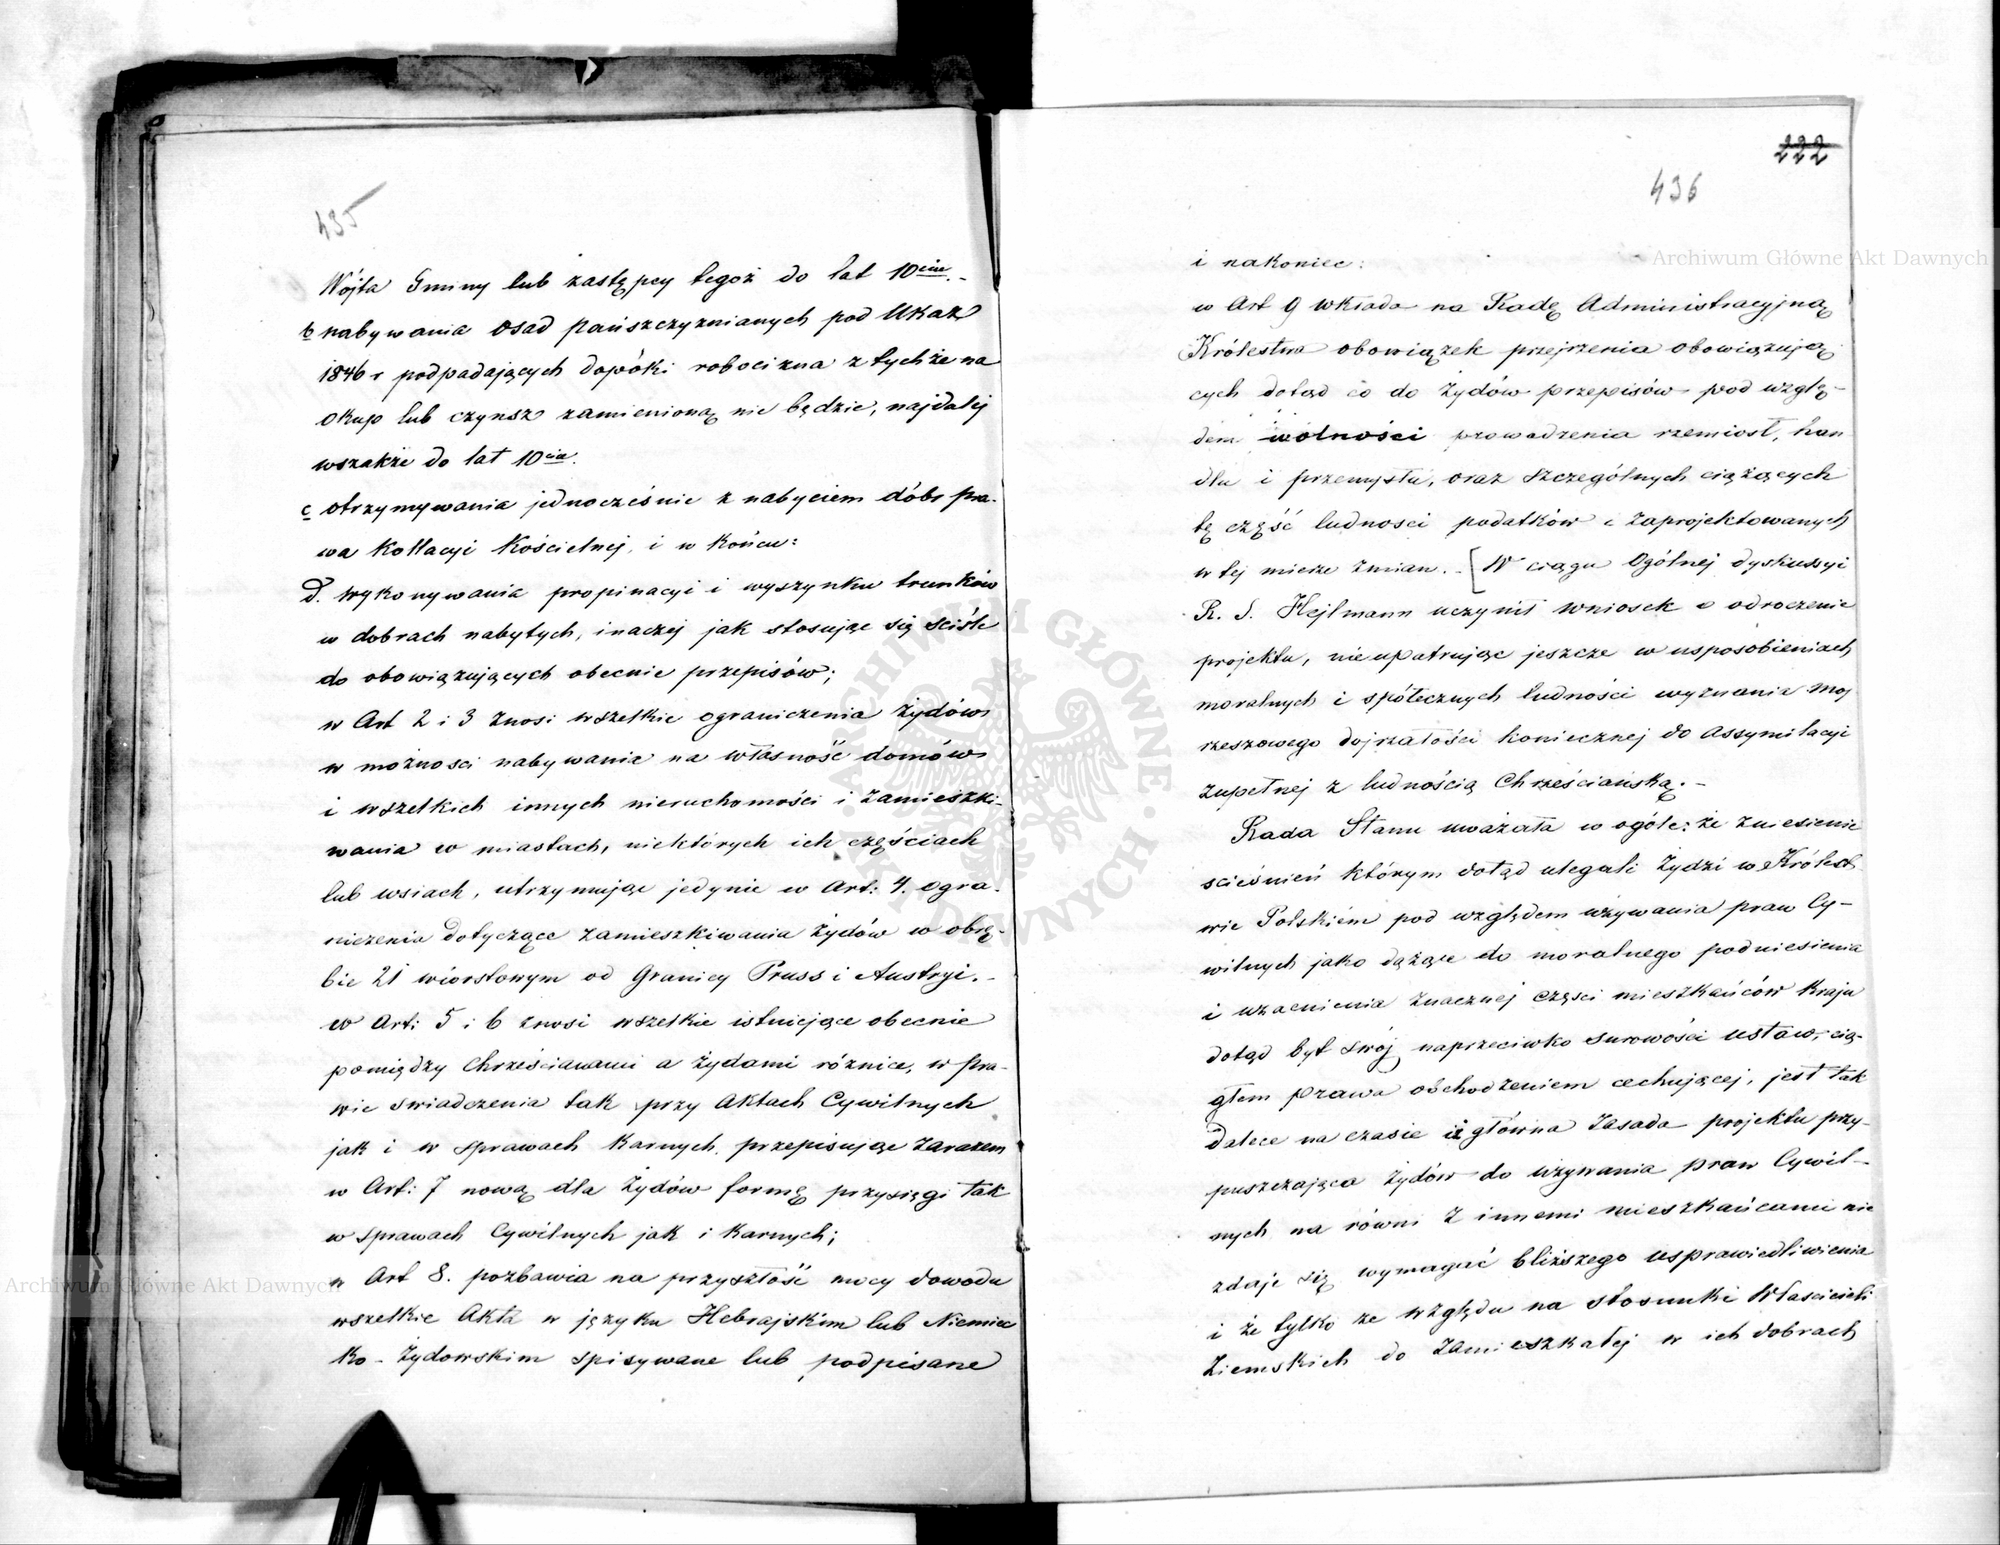 435
Wójta Gminy lub zastępcy tegoż do lat 10ciu.-
b nabywania osad pańszczyznianych pod Ukaz
1846 r podpadających dopóki robocizna z tychże na
okup lub czynsz zamienioną nie będzie, najdalej
wszakże do lat 10ciu.
c otrzymywania jednocześnie z nabyciem dóbr pra-
wa Kollacyi Kościelnej, i w końcu:
d. wykonywania propinacyi i wyszynku trunków
w dobrach nabytych, inaczej jak stosując się ściśle
do obowiązujących obecnie przepisów;
w Art 2 i 3 znosi wszelkie ograniczenia żydów
w możnosci nabywania na własność domów
i wszelkich innych nieruchomości i zamieszki-
wania w miastach, niektórych ich częściach
lub wsiach, utrzymując jedynie w Art: 4. ogra-
niczenia dotyczące zamieszkiwania żydów w obrę-
bie 21 wiorstowym od Granicy Pruss i Austryi.-
w Art: 5 i 6 znosi wszelkie istniejące obecnie
pomiędzy Chrześcianami a żydami różnice, w pra-
wie swiadczenia tak przy Aktach Cywilnych
jak i w sprawach Karnych, przepisując zarazem
w Art: 7 nową dla żydów formę przysięgi tak
w sprawach Cywilnych jak i Karnych;
w Art 8. pozbawia na przyszłość mocy dowodu
wszelkie Akta w języku Hebrajskim lub Niemiec
ko-żydowskim spisywane lub podpisane
222
436
i nakoniec:
w Art 9 wkłada na Radę Administracyjną
Królestwa obowiązek przejrzenia obowiązują
cych dotąd co do żydów przepisów pod wzglę-
dem wolności prowadzenia rzemiosł, han
dlu i przemysłu, oraz szczególnych ciążących
tę część ludnosci podatków i zaprojektowanych
w tej mierze zmian.- [W ciągu Ogólnej dyskussyi
R. S. Hejlmann uczynił wniosek o odroczenie
projektu, nieupatrując jeszcze w usposobieniach
moralnych i spółecznych ludności wyznania moj
rzeszowego dojrzałości koniecznej do assymilacyi
zupełnej z ludnością Chrześciańską.-
Rada Stanu uważała w ogóle: że zniesienie
scieśnień którym dotąd ulegali żydzi w Królest
wie Polskiém pod względem używania praw Cy-
wilnych jako dążące do moralnego podniesienia
i uzacnienia znacznej części mieszkańców kraju
dotąd był swój naprzeciwko surowości ustaw, cią-
głem prawa obchodzeniem cechującej, jest tak
dalece na czasie iż główna zasada projektu przy-
puszczająca żydów do używania praw Cywil-
nych na równi z innemi mieszkańcami nie
zdaje się wymagać bliższego usprawiedliwienia
i że tylko ze względu na stosunki Właścicieli
Ziemskich do zamieszkałej w ich dobrach
Archiwum Główne Akt Dawnych
Archiwum Główne Akt Dawnych
ARCHIWUM GŁÓWNE AKT DAWNYCH